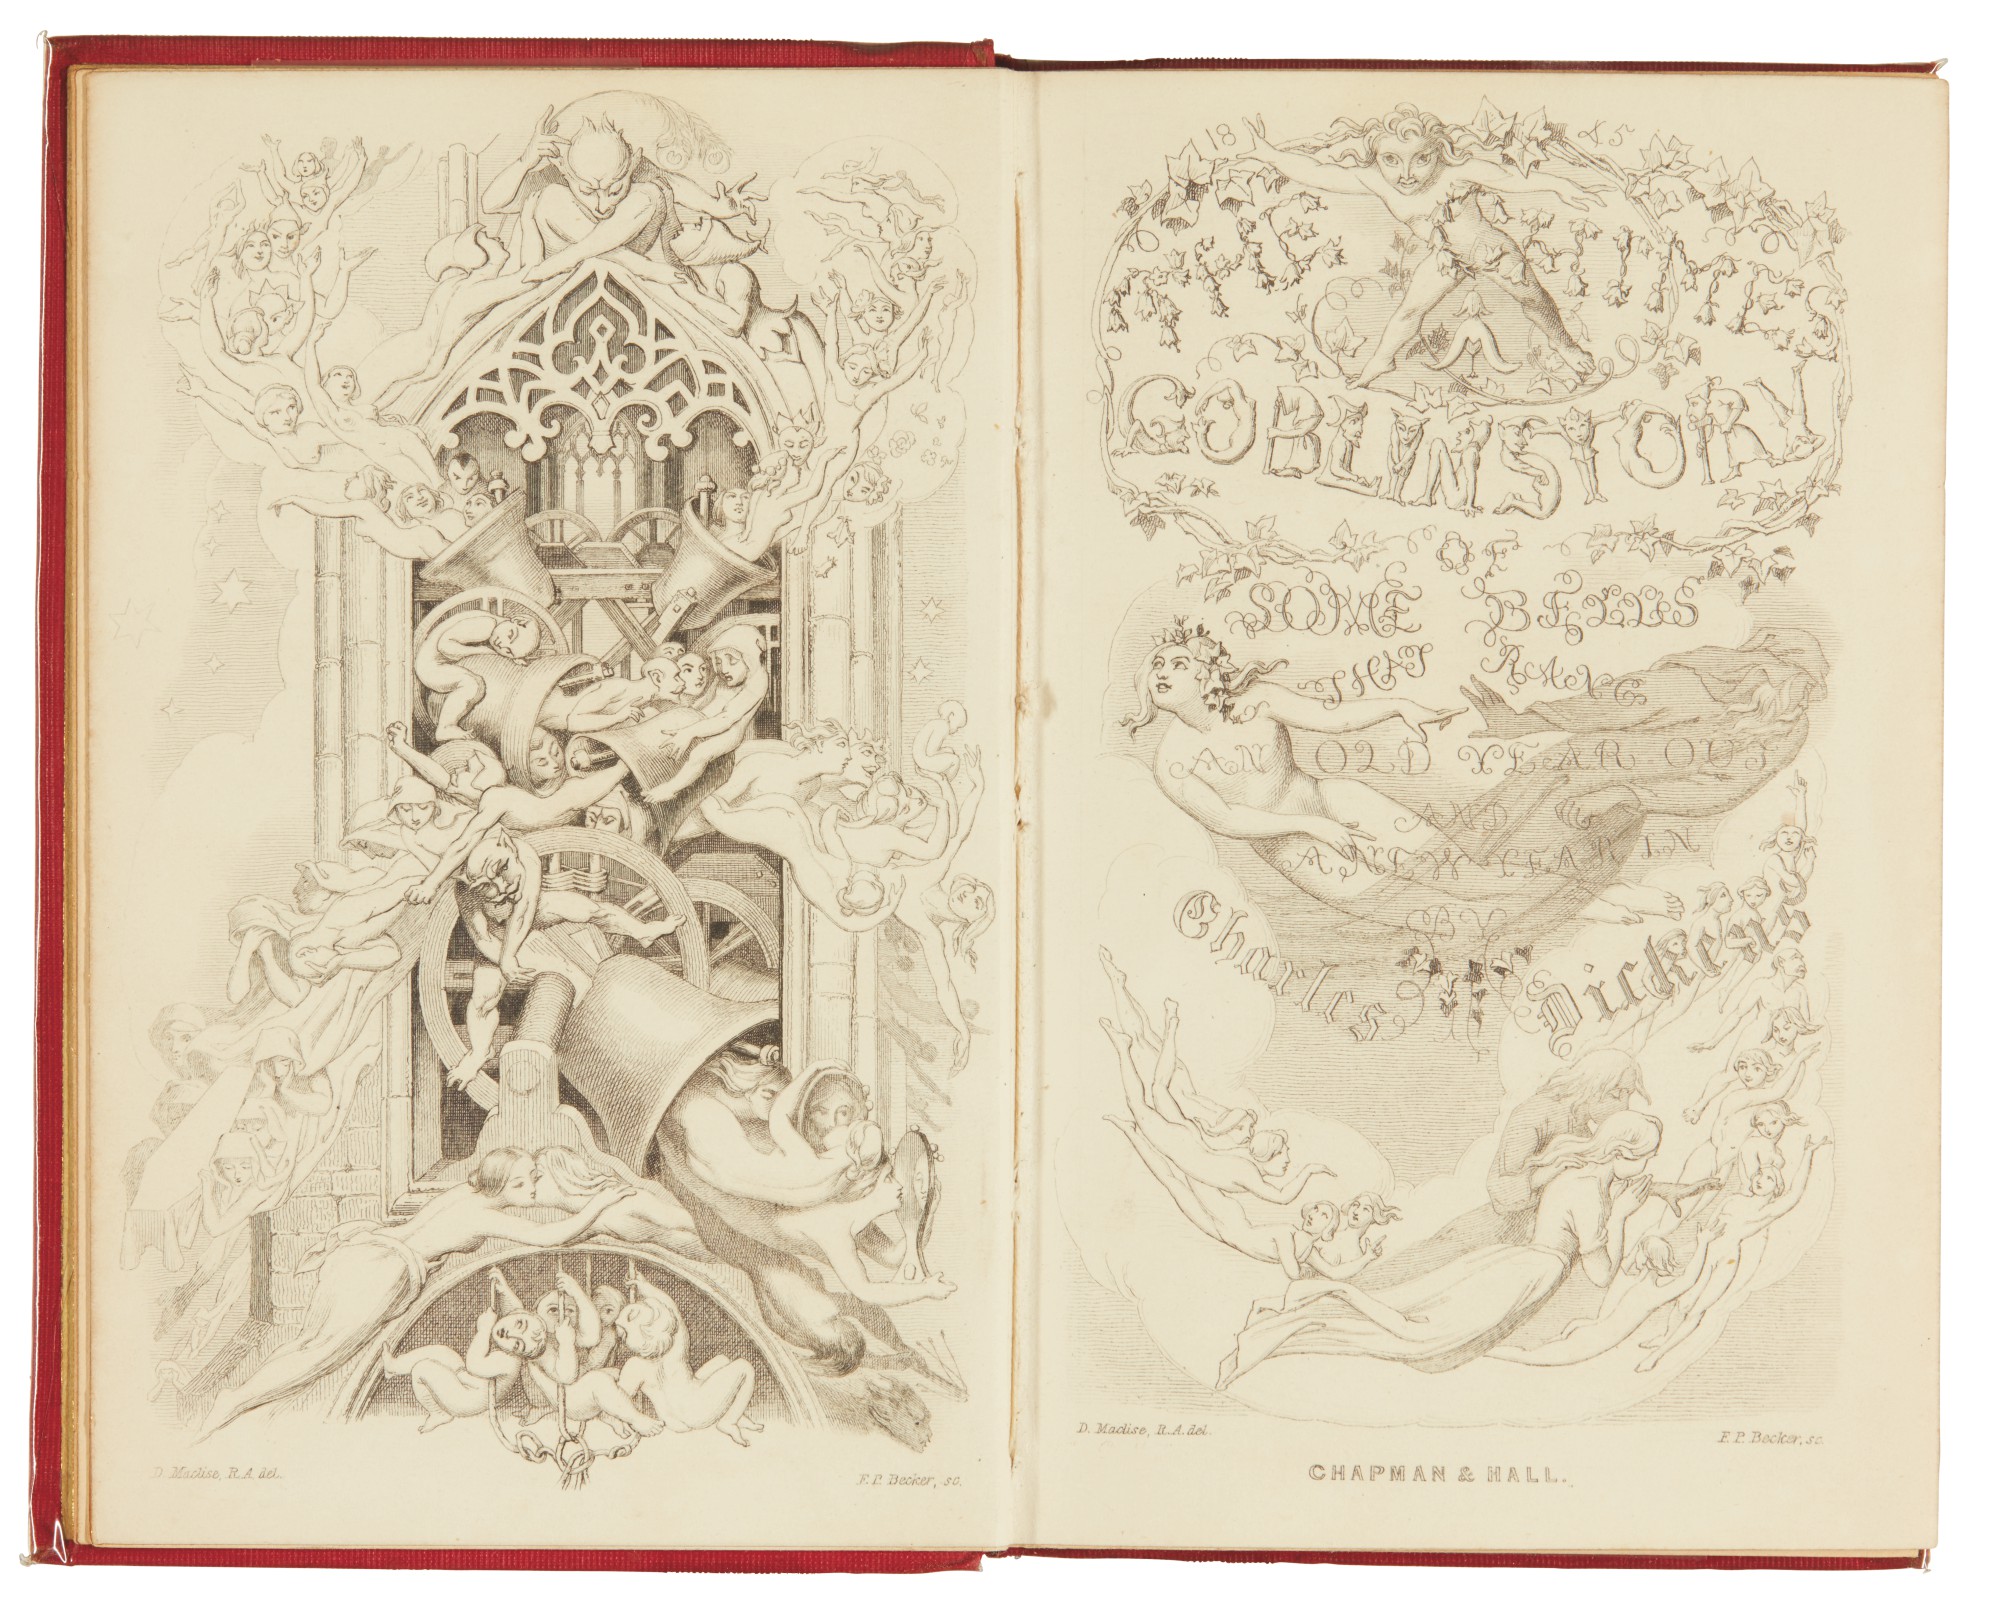 D. Maclise, R.A. del.
F.P. Becker, sc.
18 45
THE CHIMES
A
GOBLIN STORY
OF
SOME BELLS
THAT RANG
AN OLD YEAR OUT
AND
A NEW YEAR IN
BY
Charles Dickens
D. Maclise, R.A. del.
F.P. Becker, sc.
CHAPMAN & HALL.